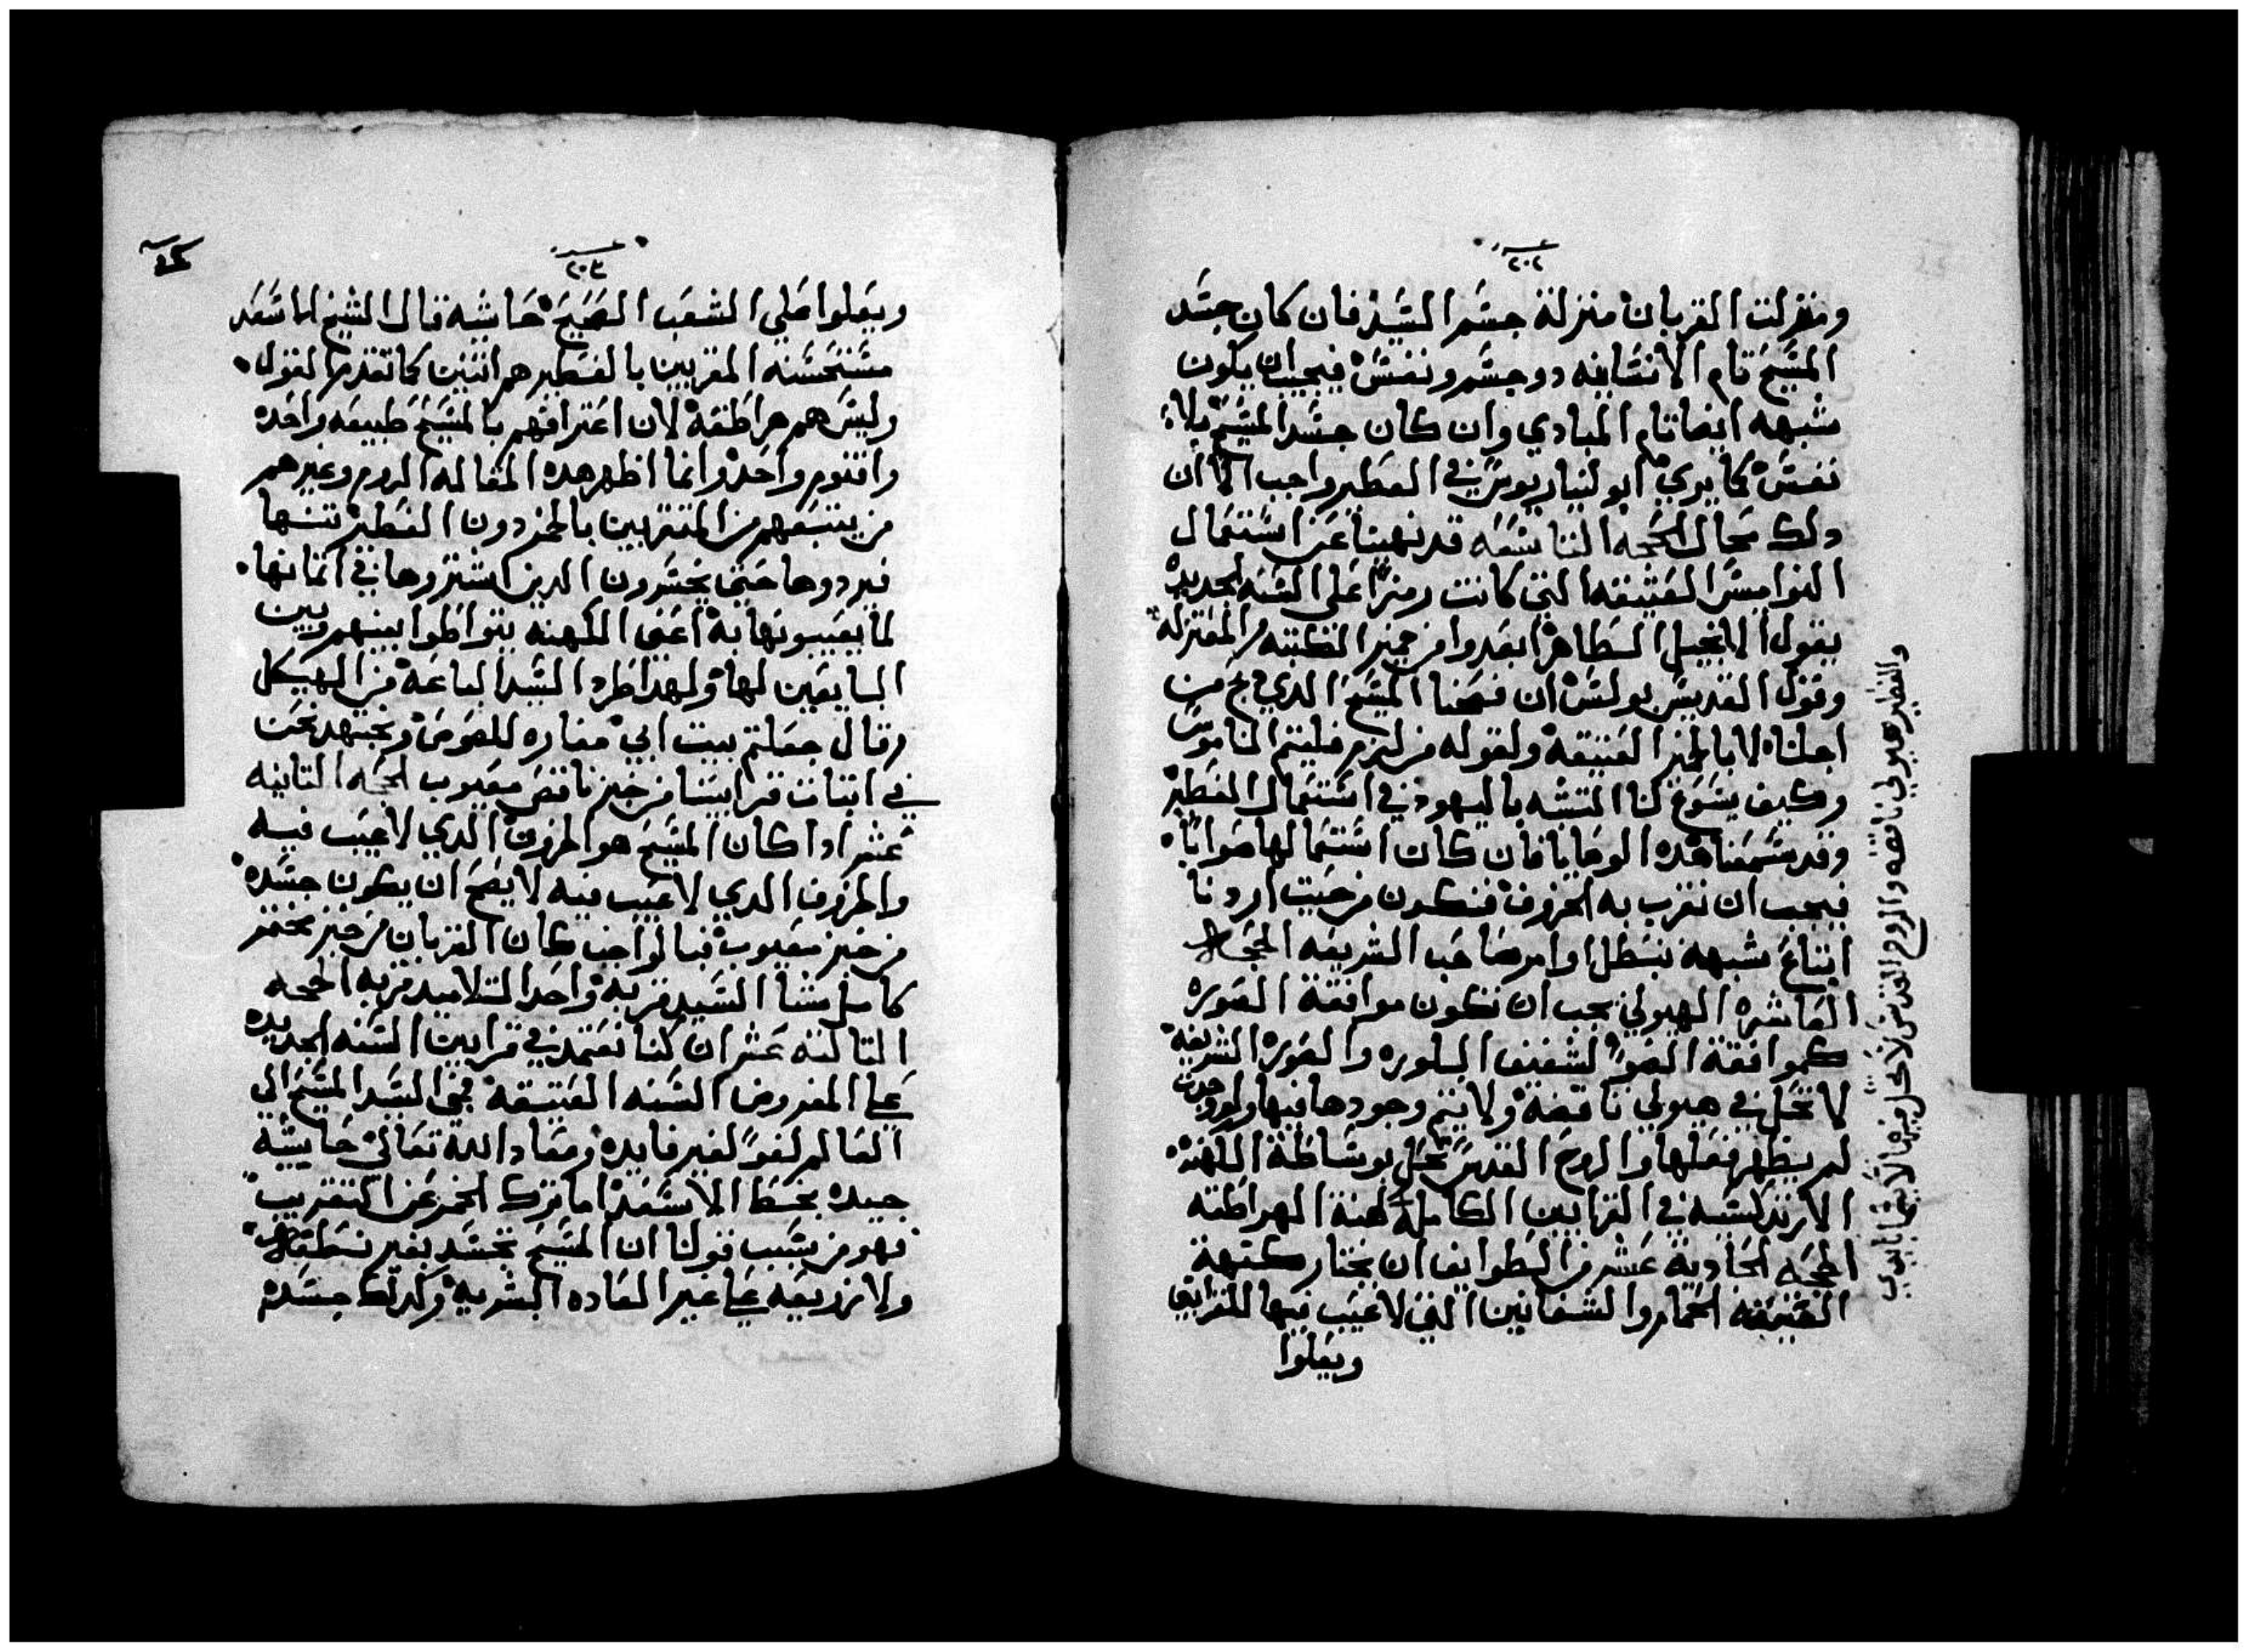 ٢٠٢
ومنزلت القربان منزلة جسم السيد فان كان جسد
المسيح تام الانسانيه دو جسم ونفس فيجب ان يكون
شبهه ايضا تام المبادي وان كان جسد المسيح بلا
نفس كما يري ابوليناريوس في الفطير واجب الا ان
دلك محال الحجه التاسعه قد نهينا عن استعمال
النواميس العتيقه التي كانت رمزا على السنه الجديده
بقول الانجيل الطاهر ابعدوا من خمير الكتبه والمعتزله
وقول القديس بولس ان فصحنا المسيح الدي دبح من
اجلنا لا بالخمير العتيقه ولقوله من لم يتم الناموس
وكيف يسوغ لنا التشبه باليهود في استعمال الفطير
وقد سمعنا هده الوصايا فان كان استعمالها صوابا
فيجب ان نقرب به الخروف فنكون من حيت اردنا
اتباع شبهه نبطل اوامر صاحب الشريعه الحجه
العاشره الهيولي يجب ان تكون موافقة الصوره
كموافقة الضو لشفيف البلوره والصوره الشريفه
لا تحل في هيولي ناقصه ولا يتم وجودها فيها ولو وجدت
لم يظهر فعلها والروح القدس تحل بوساطة الكهنه
الارتدكسيه في القرابين الكامله كهنة الهراطقه
الحجه الحاديه عشر من الطوايف ان يختار كهنة
العتيقه الحمام والشفانين التي لا عيب فيها للقرابين
ويعلوا
والفطير هيولي ناقصه والروح القدس لا تحل فيها
٢٠٣
ويعلوا على الشعب الصحيح حاشيه قال الشيخ الاسعد
مستحسنه المقربين بالفطير هم اتنين كما تقدم القول
وليس هم هراطقه لان اعترافهم بالمسيح طبيعه واحده
واقنوم واحد وانما اظهر هده المقاله الروم وغيرهم
من يتبعهم من المتقربين بالخمر دون الفطير
فيردوها حتي يخسرون الدين اشتروها في اتمانها
لما يعيبونها به اعني الكهنه يتواطوا بينهم وبين
البايعين لها ولهدا طرد السيد الباعه من الهيكل
وقال جعلتم بيت ابي مغاره للصوص ونجتهد نحن
في اتبات قرابيننا من خبز ناقص معيوب الحجه التانيه
عشر ادا كان المسيح هو الخروف الدي لا عيب فيه
والخروف الدي لا عيب فيه لا يصح ان يكون جسده
من خبز معيوب فبالواجب كان القربان من خبز مختمر
كامل مند السيد قربه واحد التلاميد قربه الحجه
التالته عشر ان كنا نعتمد في قرابين السنه الجديده
علي المفروض السنه العتيقه فمجي السيد المسيح الي
العالم لغوا لغير فايده ومعاد الله تعالي حاشيه
جيده بخط الاسعد اما ترك الخمر عن التقريب
فهو من سبب قولنا ان المسيح تجسد بغير نطفه
ولا زريعه علي غير العاده البشريه وكدلك جسده